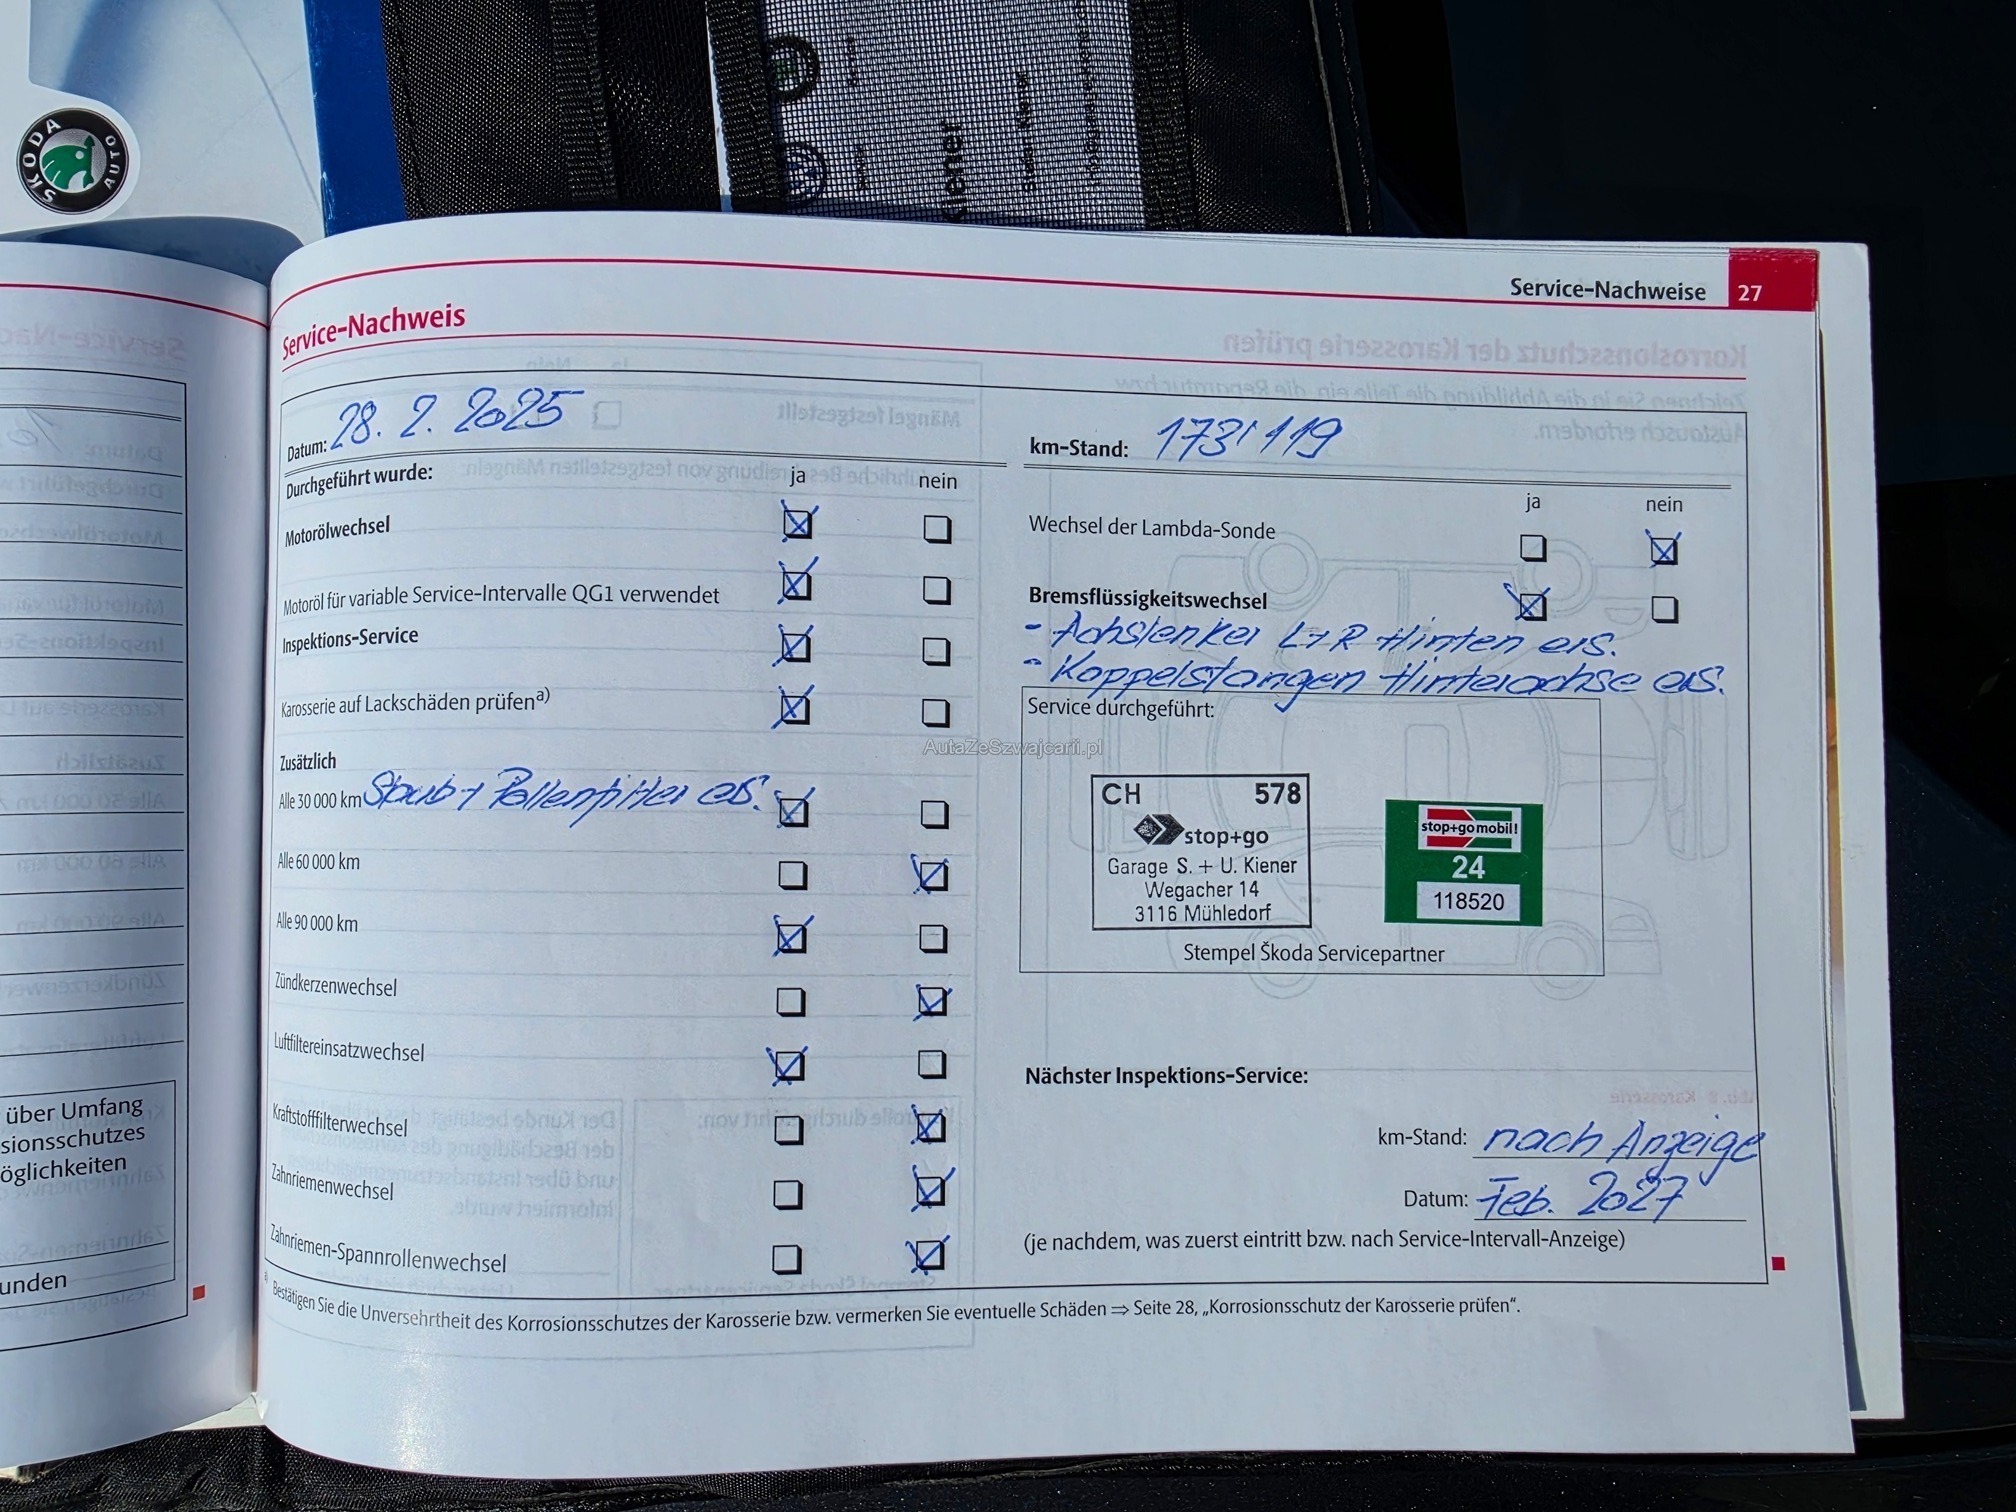 SKODA AUTO
Kiener
Service-Nachweise 27
Service-Nachweis
Datum: 28. 2. 2025
km-Stand: 173'119
Durchgeführt wurde:
ja nein
Motorölwechsel
Motoröl für variable Service-Intervalle QG1 verwendet
Inspektions-Service
Karosserie auf Lackschäden prüfen a)
Zusätzlich
Alle 30 000 km Staub + Pollenfilter ers.
Alle 60 000 km
Alle 90 000 km
Zündkerzenwechsel
Luftfiltereinsatzwechsel
Kraftstofffilterwechsel
Zahnriemenwechsel
Zahnriemen-Spannrollenwechsel
ja nein
Wechsel der Lambda-Sonde
Bremsflüssigkeitswechsel
- Achslenker L+R Hinten ers.
- Koppelstangen Hinterachse ers.
Service durchgeführt:
AutaZeSzwajcarii.pl
CH 578
stop+go
Garage S. + U. Kiener
Wegacher 14
3116 Mühledorf
stop+go mobil!
24
118520
Stempel Škoda Servicepartner
Nächster Inspektions-Service:
km-Stand: nach Anzeige
Datum: Feb. 2027
(je nachdem, was zuerst eintritt bzw. nach Service-Intervall-Anzeige)
a) Bestätigen Sie die Unversehrtheit des Korrosionsschutzes der Karosserie bzw. vermerken Sie eventuelle Schäden ⇒ Seite 28, „Korrosionsschutz der Karosserie prüfen“.
über Umfang
sionsschutzes
öglichkeiten
unden